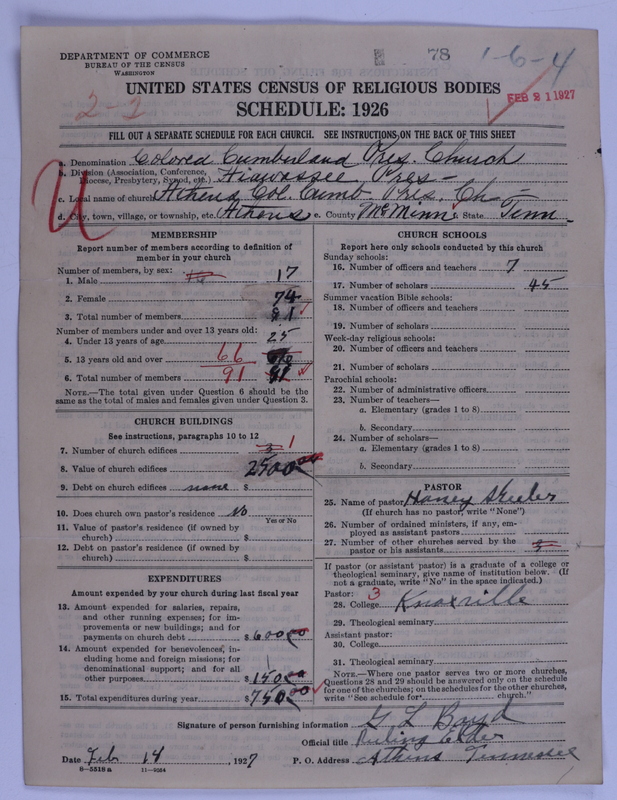 DEPARTMENT OF COMMERCE
BUREAU OF THE CENSUS
WASHINGTON
78
1-6-4
FEB 21 1927
UNITED STATES CENSUS OF RELIGIOUS BODIES
SCHEDULE: 1926
2-2
FILL OUT A SEPARATE SCHEDULE FOR EACH CHURCH. SEE INSTRUCTIONS ON THE BACK OF THIS SHEET
a. Denomination Colored Cumberland Pres. Church
b. Division (Association, Conference, Diocese, Presbytery, Synod, etc.) Hiawassee Pres-
c. Local name of church Athens Col. Cumb Pres. Ch-
d. City, town, village, or township, etc. Athens e. County McMinn State Tenn
MEMBERSHIP
Report number of members according to definition of
member in your church
Number of members, by sex:
1. Male 17
2. Female 74
3. Total number of members 91
Number of members under and over 13 years old:
4. Under 13 years of age 25
5. 13 years old and over 66
6. Total number of members 91
NOTE.—The total given under Question 6 should be the
same as the total of males and females given under Question 3.
CHURCH BUILDINGS
See instructions, paragraphs 10 to 12
7. Number of church edifices 3 1
8. Value of church edifices 2500.00
9. Debt on church edifices none $
10. Does church own pastor's residence? No
Yes or No
11. Value of pastor's residence (if owned by
church) $
12. Debt on pastor's residence (if owned by
church) $
EXPENDITURES
Amount expended by your church during last fiscal year
13. Amount expended for salaries, repairs,
and other running expenses; for im-
provements or new buildings; and for
payments on church debt $ 600.00
14. Amount expended for benevolences, in-
cluding home and foreign missions; for
denominational support; and for all
other purposes $ 150.00
15. Total expenditures during year $ 750.00
CHURCH SCHOOLS
Report here only schools conducted by this church
Sunday schools:
16. Number of officers and teachers 7
17. Number of scholars 45
Summer vacation Bible schools:
18. Number of officers and teachers
19. Number of scholars
Week-day religious schools:
20. Number of officers and teachers
21. Number of scholars
Parochial schools:
22. Number of administrative officers
23. Number of teachers—
a. Elementary (grades 1 to 8)
b. Secondary
24. Number of scholars—
a. Elementary (grades 1 to 8)
b. Secondary
PASTOR
25. Name of pastor
(If church has no pastor, write "None")
26. Number of ordained ministers, if any, em-
ployed as assistant pastors
27. Number of other churches served by the
pastor or his assistants
If pastor (or assistant pastor) is a graduate of a college or
theological seminary, give name of institution below. (If
not a graduate, write "No" in the space indicated.)
Pastor: 3
28. College Knoxville
29. Theological seminary
Assistant pastor:
30. College
31. Theological seminary
NOTE.—Where one pastor serves two or more churches,
Questions 28 and 29 should be answered only on the schedule
for one of the churches; on the schedules for the other churches,
write "See schedule for church."
Signature of person furnishing information G L Boyd
Official title Ruling Elder
Date Feb 14, 1927 P. O. Address Athens Tennessee
8-5518 a 11-9034